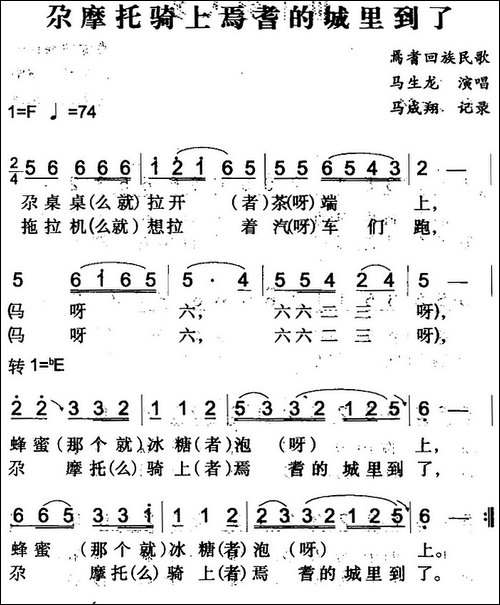 尕摩托骑上焉耆的城里到了
焉耆回族民歌
马生龙 演唱
1=F ♩=74 马成翔 记录
2/4 5 6 6 6 6 | 1 2 1 6 5 | 5 5 6 5 4 3 | 2 — |
尕桌桌(么就)拉开 (者)茶(呀)端 上,
拖拉机(么就)想拉 着汽(呀)车们跑,
5 6 1 6 5 | 5 · 4 | 5 5 4 2 4 | 5 — |
(马 呀 六, 六六二三 呀),
(马 呀 六, 六六二三 呀),
转 1=♭E
2 2 3 3 2 | 1 1 2 | 5 3 3 2 1 2 5 | 6 — |
蜂蜜(那个就)冰糖(者)泡 (呀) 上,
尕 摩托(么)骑上(者)焉 耆的城里到了,
6 6 5 3 3 1 | 1 1 2 | 2 3 3 2 1 2 5 | 6 — :‖
蜂蜜 (那个就)冰糖(者)泡 (呀) 上。
尕 摩托(么)骑上(者)焉 耆的城里到了。